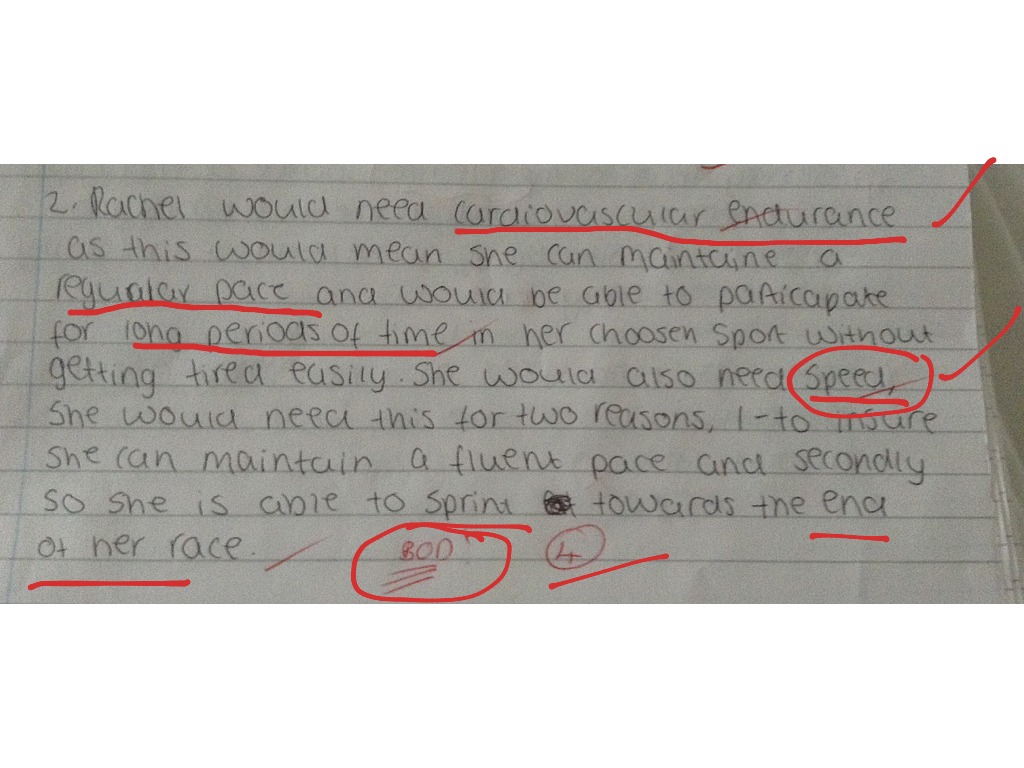 2. Rachel would need cardiovascular endurance
as this would mean she can maintaine a
regualar pace and would be able to particapate
for long periods of time in her choosen sport without
getting tired easily. She would also need speed,
she would need this for two reasons, 1-to insure
she can maintain a fluent pace and secondly
so she is able to sprint towards the end
of her race.
BOD 4